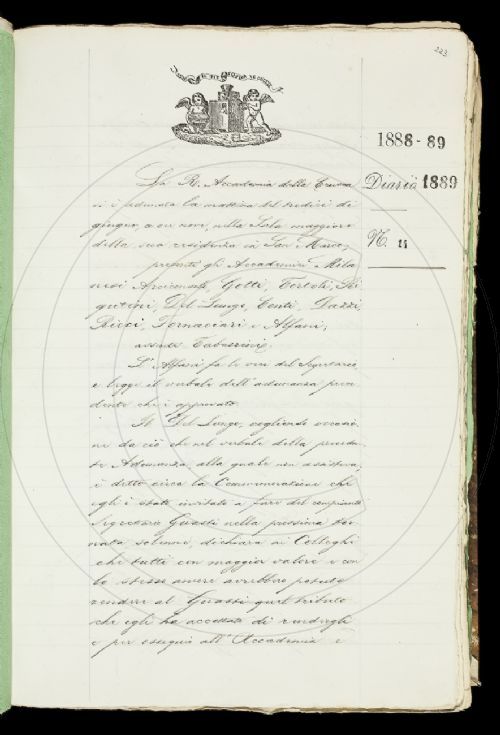 223
1888-89
Diario 1889
N. 11
La R. Accademia della Crusca
si è adunata la mattina del tredici di
giugno, a ore nove, nella Sala maggiore
della sua residenza in San Marco,
presenti gli Accademici Mila
nesi Arciconsolo, Gotti, Tortoli, Ri
gutini, Del Lungo, Conti, Dazzi,
Ricci, Fornaciari e Alfani;
assente Tabarrini.
L'Alfani fa le veci del Segretario
e legge il verbale dell'adunanza prece
dente che è approvato.
Il Del Lungo, cogliendo occasio
ne da ciò che nel verbale della preceden
te Adunanza, alla quale non assisteva,
è detto circa la Commemorazione che
egli è stato invitato a fare del compianto
Segretario Guasti nella prossima tor
nata solenne, dichiara ai Colleghi
che tutti con maggior valore e con
lo stesso amore avrebbero potuto
rendere al Guasti quel tributo
che egli ha accettato di rendergli
e per ossequio all'Accademia e